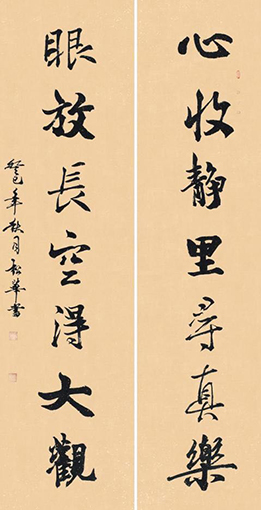 心收静里尋真樂
眼放長空得大觀
癸巳年秋月松華書